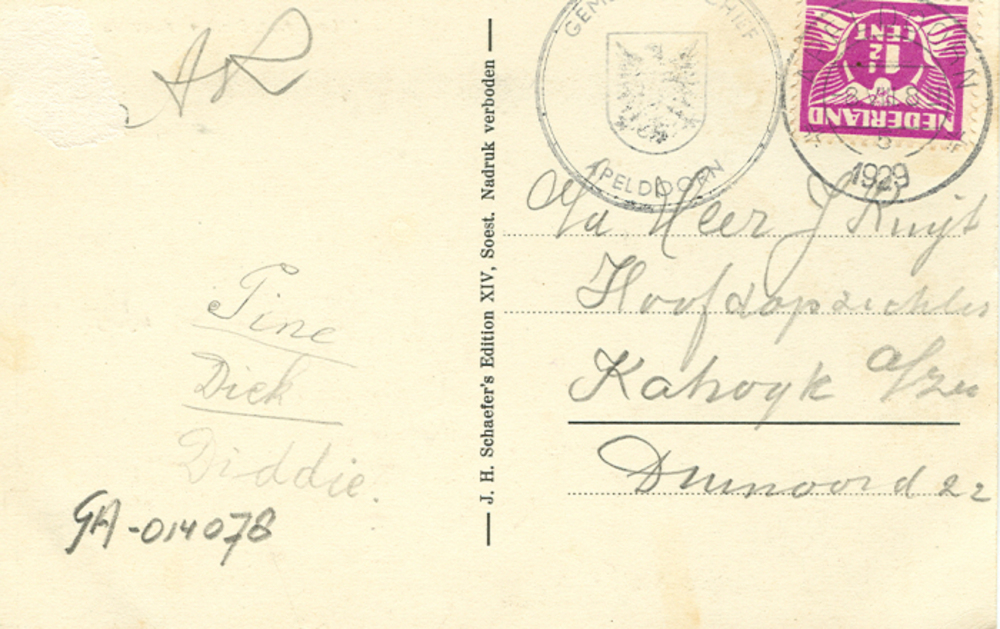 AR
Tine
Dick
Diddie.
GA-014078
— J. H. Schaefer's Edition XIV, Soest. Nadruk verboden —
APELDOORN
1½
CENT
NEDERLAND
5
1929
Heer J Kuijt
Hoofdopzichter
Katwyk a/Zee
Duinoord 22